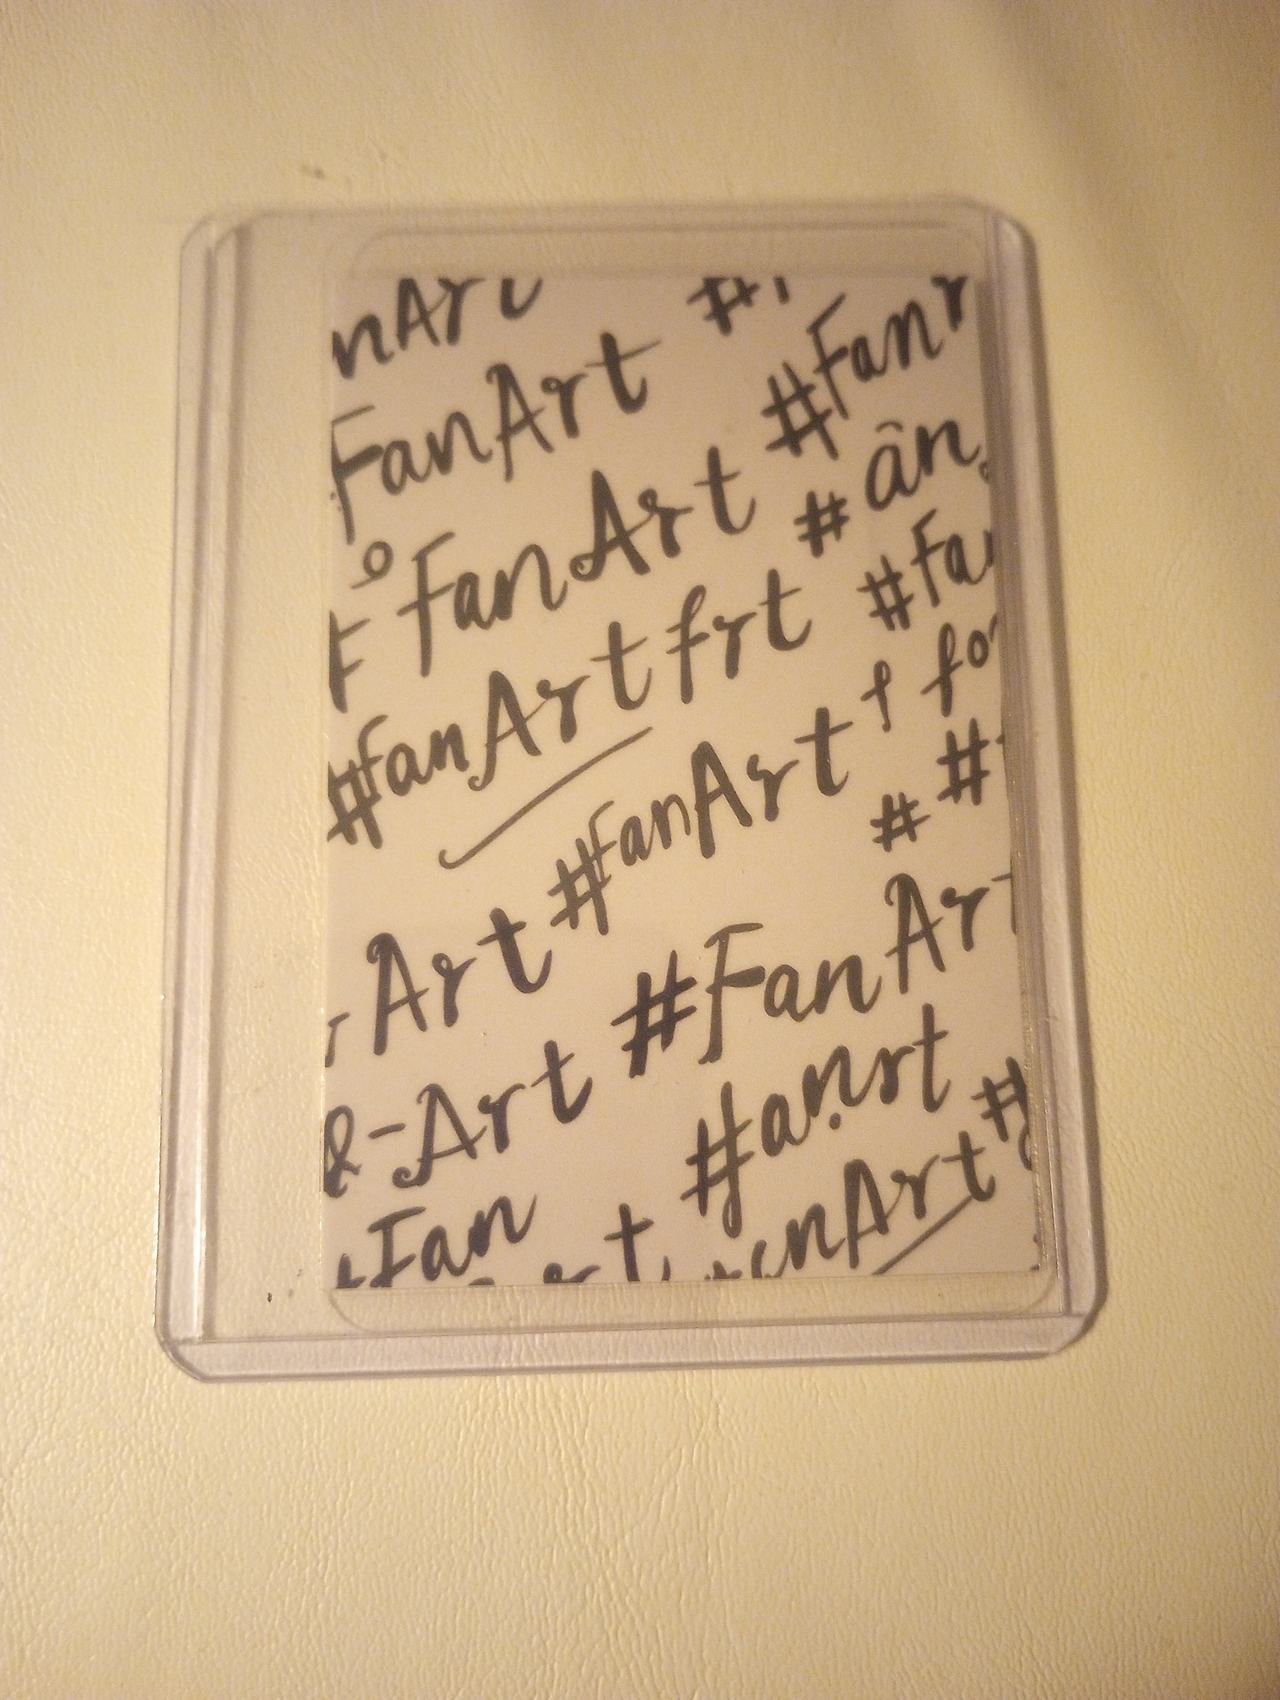 nArt #
FanArt #Fanr
FanArt # ân
#FanArt frt #Fa
#FanArt f fo
Art # #
&-Art #FanArt
#anrt #
Fan nArt
rt